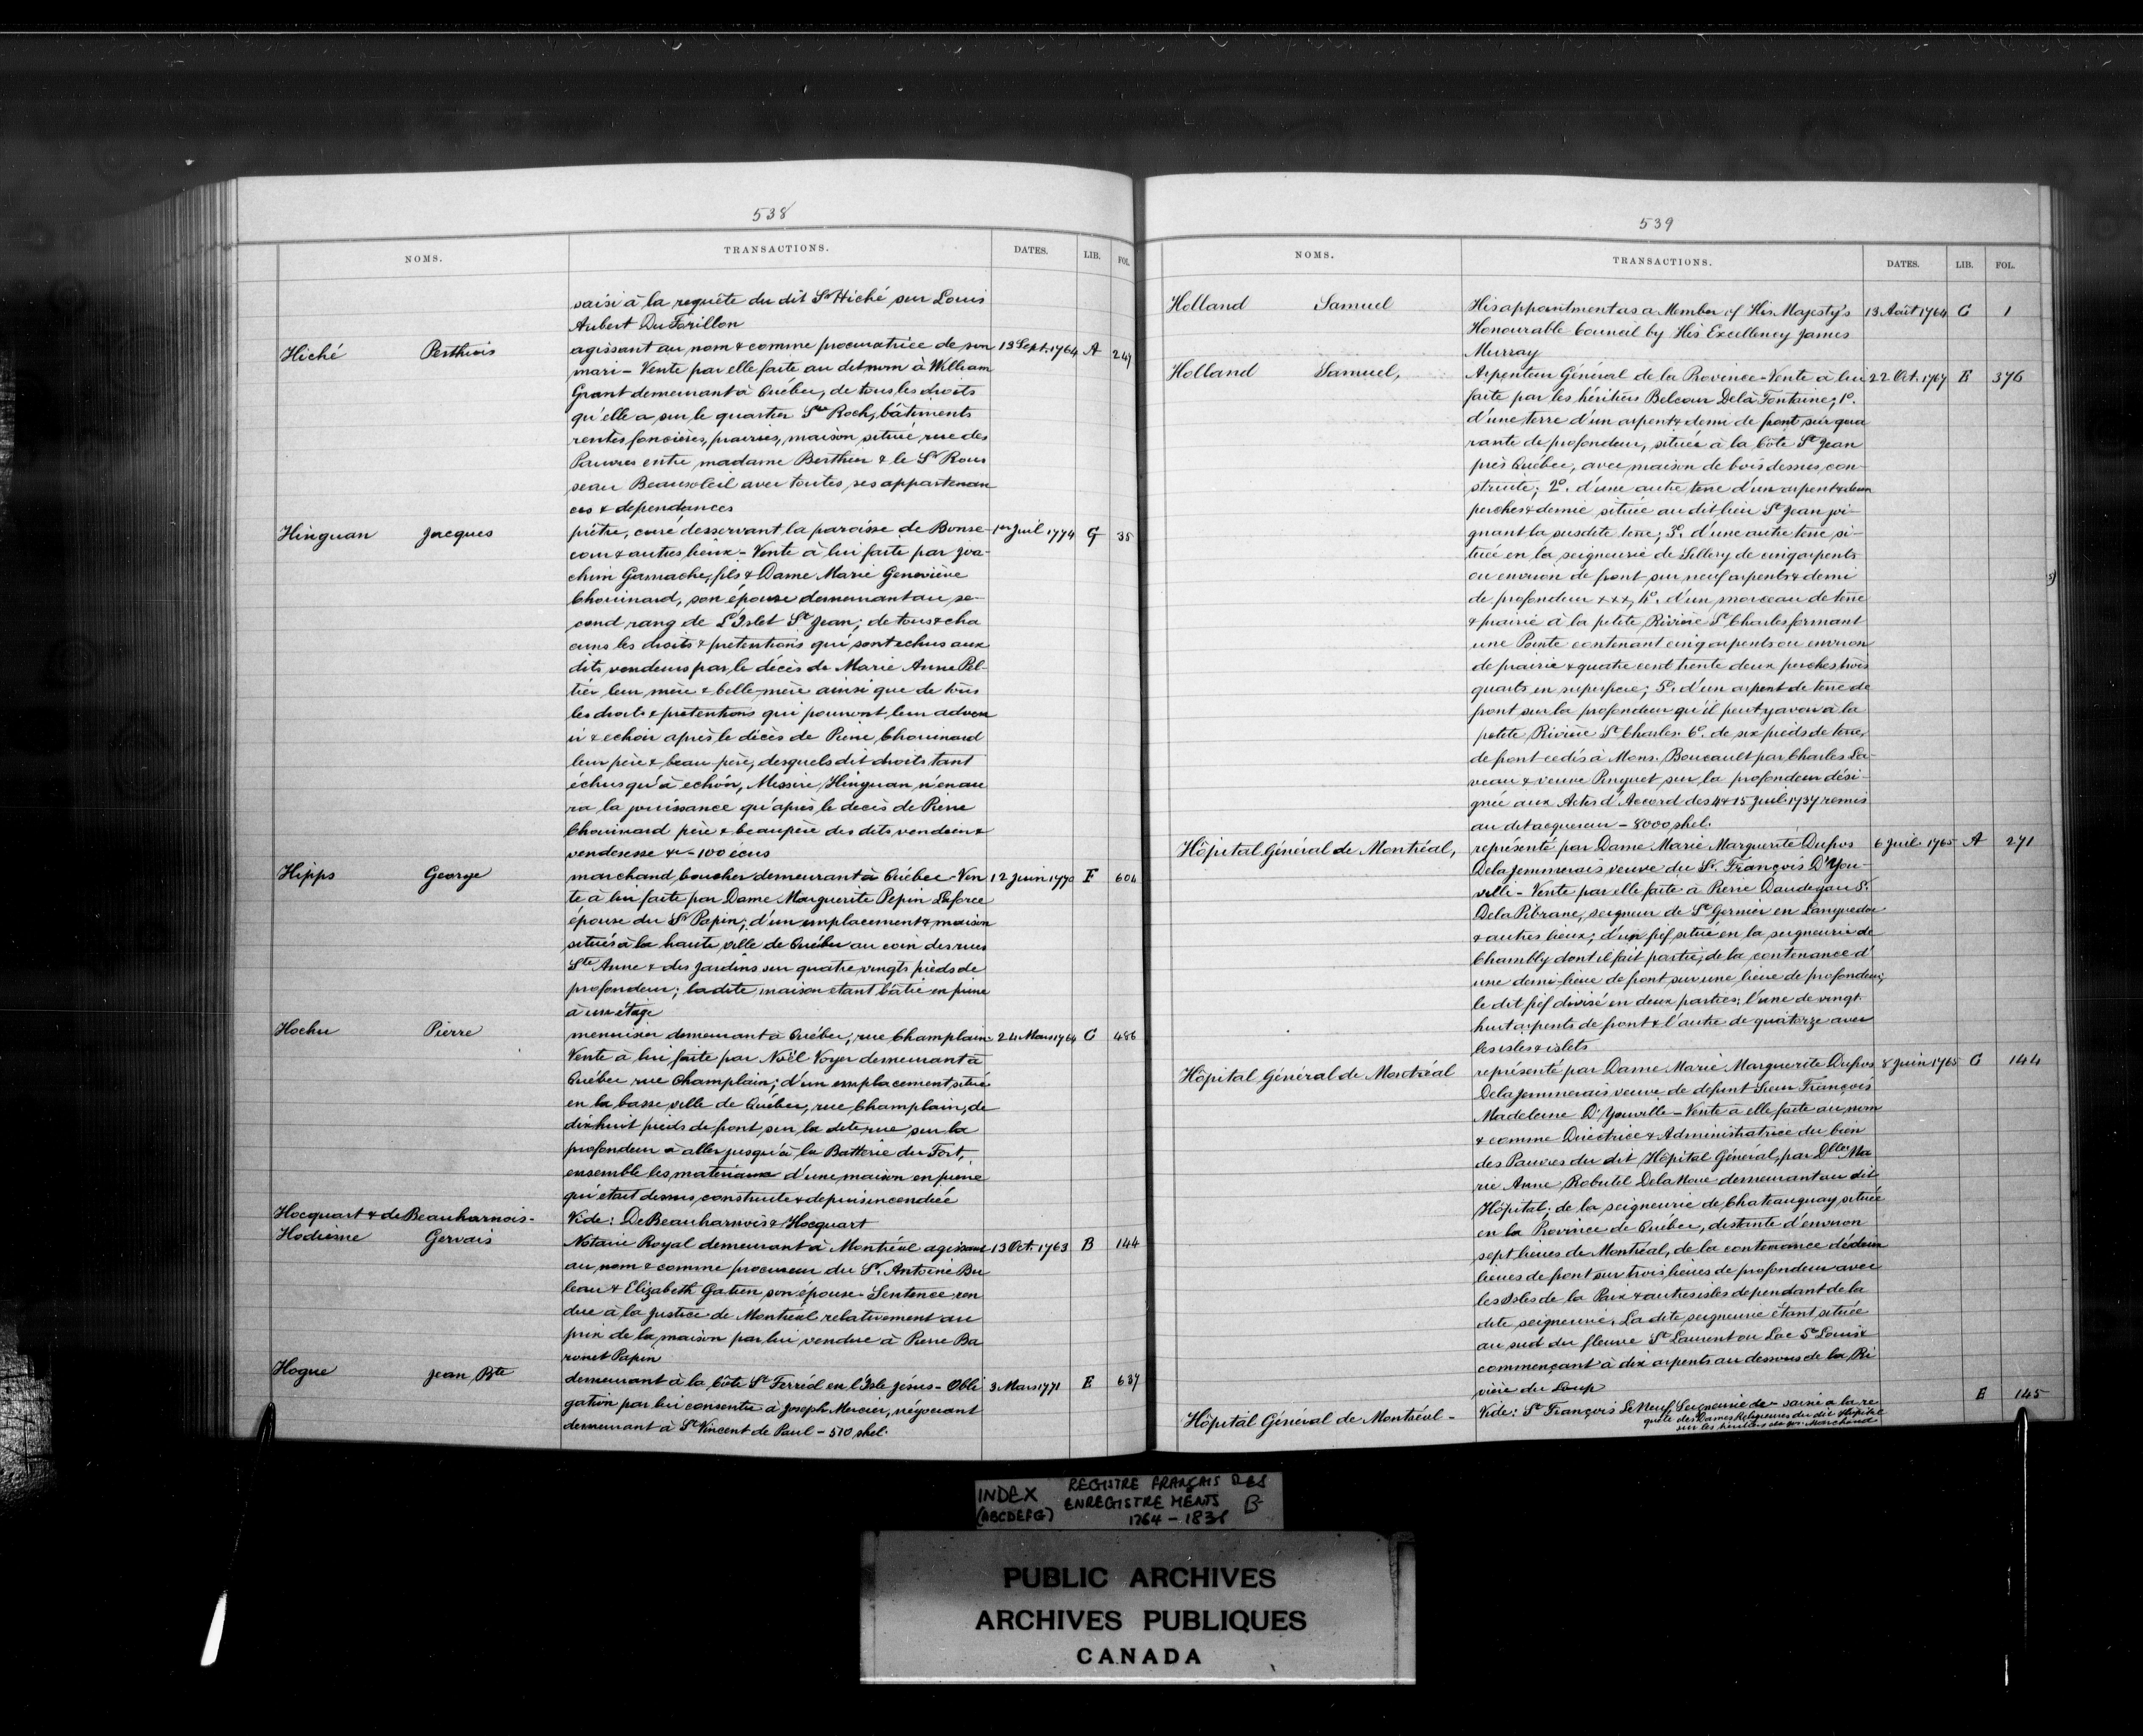 538
NOMS. TRANSACTIONS. DATES. LIB. FOL.
saisi à la requête du dit Sr Hiché sur Louis
Aubert Du Forillon
Hiché Perthuis agissant au nom & comme procuratrice de son 13 Sept. 1764 A 247
mari - Vente par elle faite au dit nom à William
Grant demeurant à Québec, de tous les droits
qu'elle a sur le quartier St Roch, bâtiments
rentes foncières, prairies, maison située rue des
Pauvres entre madame Berthier & le Sr Rous
seau Beausoleil avec toutes ses appartenan
ces & dependances
Hinguan Jacques prêtre, curé desservant la paroisse de Bonse- 1er Juil 1774 G 35
cour & autres lieux - Vente à lui faite par Joa-
chim Gamache, fils & Dame Marie Geneviève
Chouinard, son épouse demeurant au se-
cond rang de L'Islet St Jean; de tous & cha
cuns les droits & pretentions qui sont echus aux
dits vendeurs par le décès de Marie Anne Pel-
tier leur mère & belle-mère ainsi que de tous
les droits & pretentions qui pourront leur adven
ir & echoir après le décès de Pierre Chouinard
leur père & beau père, desquels dit droits tant
échus qu'à echoir, Messire Hinguan n'en au
ra la jouissance qu'après le decès de Pierre
Chouinard père & beaupère des dits vendeur &
venderesse &c - 100 écus
Hipps George marchand boucher demeurant à Québec - Ven 12 Juin 1770 F 604
te à lui faite par Dame Marguerite Pepin Laforce
épouse du Sr Papin; d'un emplacement & maison
situés à la haute ville de Québec au coin des rues
Ste Anne & des Jardins sur quatre vingts pieds de
profondeur; ladite maison étant bâtie en pierre
à un étage
Hochu Pierre menuisier demeurant à Québec, rue Champlain 24 Mars 1764 C 486
Vente à lui faite par Noël Voyer demeurant à
Québec rue Champlain; d'un emplacement situé
en la basse ville de Québec, rue Champlain, de
dixhuit pieds de front sur la dite rue sur la
profondeur à aller jusqu'à la Batterie du Fort,
ensemble les materiaux d'une maison en pierre
qui était dessus construite & depuis incendiée
Hocquart & de Beauharnois - Vide: De Beauharnois & Hocquart
Hodiesne Gervais Notaire Royal demeurant à Montréal agissant 13 Oct. 1763 B 144
au nom & comme procureur du Sr. Antoine Bu
leau & Elizabeth Gatien son épouse - Sentence ren
due à la Justice de Montréal relativement au
prix de la maison par lui vendue à Pierre Ba
ronet Papin
Hogue Jean Bte demeurant à la Côte St Ferréol en l'Isle Jésus - Obli 3 Mars 1771 E 637
gation par lui consentie à Joseph Mercier, négociant
demeurant à St Vincent de Paul - 570 shel.
539
NOMS. TRANSACTIONS. DATES. LIB. FOL.
Holland Samuel His appointment as a Member of His Majesty's 13 Août 1764 C 1
Honourable Council by His Excellency James
Murray
Holland Samuel, Arpenteur Général de la Province - Vente à lui 22 Oct. 1767 E 376
faite par les héritiers Belcour De la Fontaine; 1o.
d'une terre d'un arpent & demi de front sur qua
rante de profondeur, située à la Côte St Jean
près Québec, avec maison de bois dessus con-
struite; 2o. d'une autre terre d'un arpent & deux
perches & demie située au dit lieu St Jean joi-
gnant la susdite terre; 3o. d'une autre terre si-
tuée en la seigneurie de Sillery de cinq arpents
ou environ de front sur neuf arpents & demi
de profondeur xxx, 4o. d'un morceau de terre
& prairie à la petite Rivière St Charles formant
une Pointe contenant cinq arpents ou environ
de prairie & quatre cent trente deux perches trois
quarts en superficie; 5o. d'un arpent de terre de
front sur la profondeur qu'il peut y avoir à la
petite Rivière St Charles. 6o. de six pieds de terre
de front cedés à Mons. Boucault par Charles La-
veau & veuve Pinguet sur la profondeur dési-
gnée aux Actes d'Accord des 4 & 15 Juil. 1737 remis
au dit acquereur - 8000 shel.
Hôpital Général de Montréal, représenté par Dame Marie Marguerite Dufros 6 Juil. 1765 A 271
Delajemmerais veuve du Sr. François D'You-
ville - Vente par elle faite à Pierre Daudegau Sr.
De la Pibrane, seigneur de St Gernier en Languedoc
& autres lieux; d'un fief situé en la seigneurie de
Chambly dont il fait partie, de la contenance d'
une demi-lieue de front sur une lieue de profondeur;
le dit fief divisé en deux parties: l'une de vingt
huit arpents de front & l'autre de quatorze avec
les isles & islets
Hôpital Général de Montréal représenté par Dame Marie Marguerite Dufros 8 Juin 1765 C 144
Delajemmerais veuve de defunt Sieur François
Madeleine D'Youville - Vente à elle faite au nom
& comme Directrice & Administratrice du bien
des Pauvres du dit Hôpital Général, par Dlle Ma
rie Anne Robutel DelaNoue demeurant au dit
Hôpital; de la seigneurie de Chateauguay située
en la Province de Québec, distante d'environ
sept lieues de Montréal, de la contenance de deux
lieues de front sur trois lieues de profondeur avec
les Isles de la Paix & autres isles dependant de la
dite seigneurie. La dite seigneurie étant située
au sud du fleuve St Laurent ou Lac St Louis &
commençant à dix arpents au dessous de la Ri
vière du Loup
Hôpital Général de Montréal - Vide: St François Le Neuf, Seigneurie de - saisie à la re E 145
quête des Dames Religieuses du dit Hôpital
sur les héritiers de Marchand
INDEX (ABCDEFG) REGISTRE FRANÇAIS DES
ENREGISTREMENTS B
1764 - 1831
PUBLIC ARCHIVES
ARCHIVES PUBLIQUES
CANADA